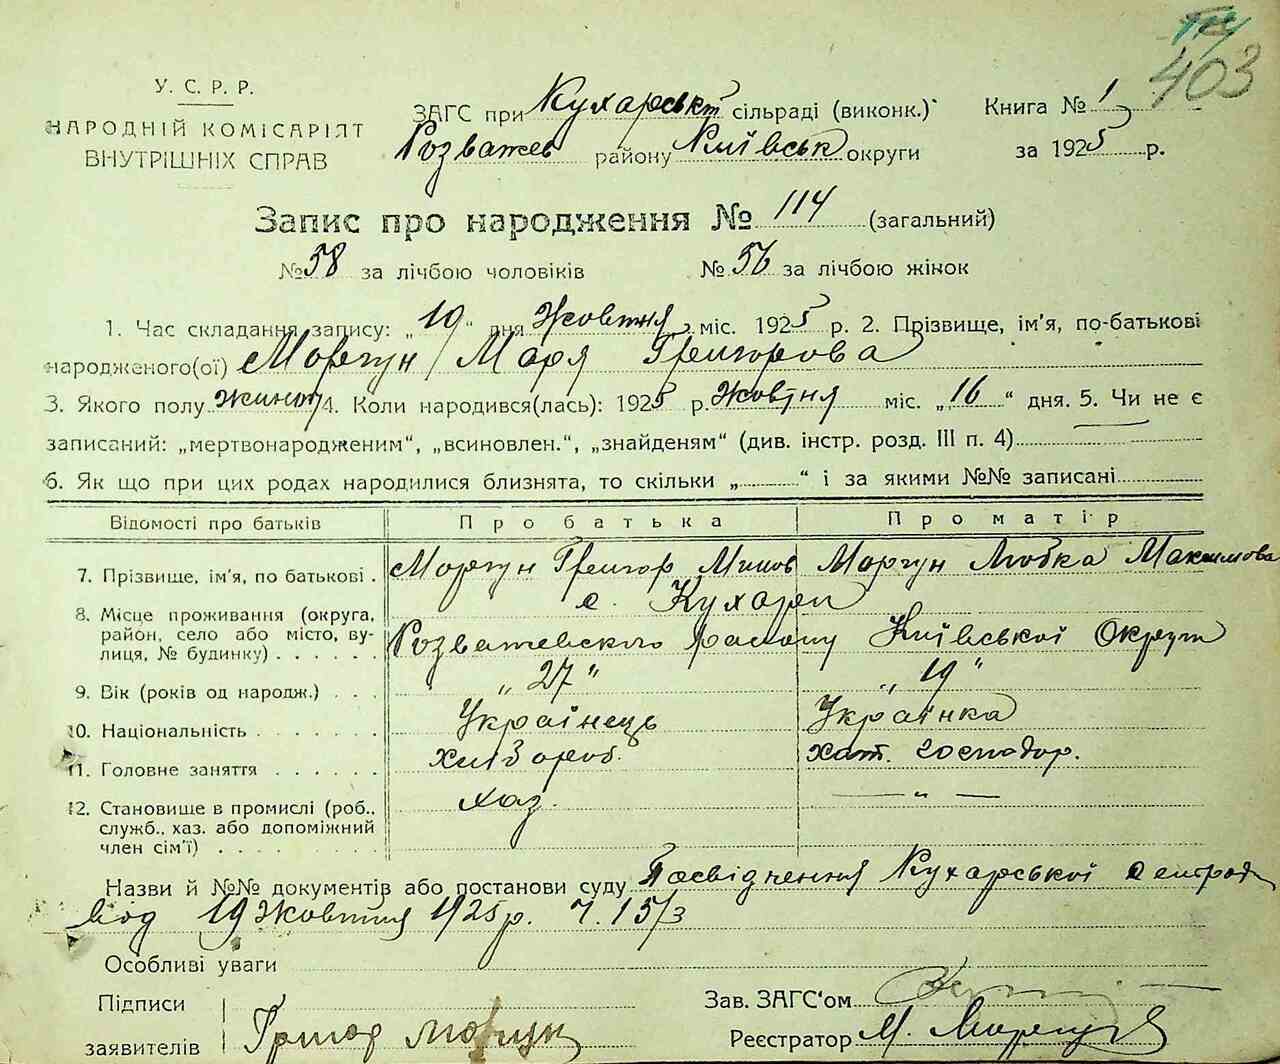 403
У. С. Р. Р.
НАРОДНІЙ КОМІСАРІЯТ
ВНУТРІШНІХ СПРАВ
ЗАГС при Кухарськ сільраді (виконк.)
Розважев району Київськ округи
Книга № 1
за 1925 р.
Запис про народження № 114 (загальний)
№ 58 за лічбою чоловіків № 56 за лічбою жінок
1. Час складання запису: „19“ дня Жовтня міс. 1925 р. 2. Прізвище, ім'я, по-батькові
народженого(ої) Моргун Марія Григорова
3. Якого полу жиноч 4. Коли народився(лась): 1925 р. Жовтня міс. „16“ дня. 5. Чи не є
записаний: „мертвонародженим“, „всиновлен.“, „знайденям“ (див. інстр. розд. III п. 4)
6. Як що при цих родах народилися близнята, то скільки „ “ і за якими №№ записані
Відомості про батьків Про батька Про матір
7. Прізвище, ім'я, по батькові . Моргун Григор Моргун Любка Максимова
8. Місце проживання (округа, с. Кухари
район, село або місто, ву-
лиця, № будинку) . . . . . . Розважевского району Київської Округи
9. Вік (років од народж.) . . . „27“ „19“
10. Національність . . . . . . . Українець Українка
11. Головне заняття . . . . . . хлібороб. хат. господар.
12. Становище в промислі (роб., хаз. — „ —
служб., хаз. або допоміжний
член сім'ї) . . . . . . . . .
Назви й №№ документів або постанови суду Посвідчення Кухарської сельради
від 19 Жовтня 1925 р.
Особливі уваги
Підписи
заявителів Григор Моргун
Зав. ЗАГС'ом
Реєстратор М.